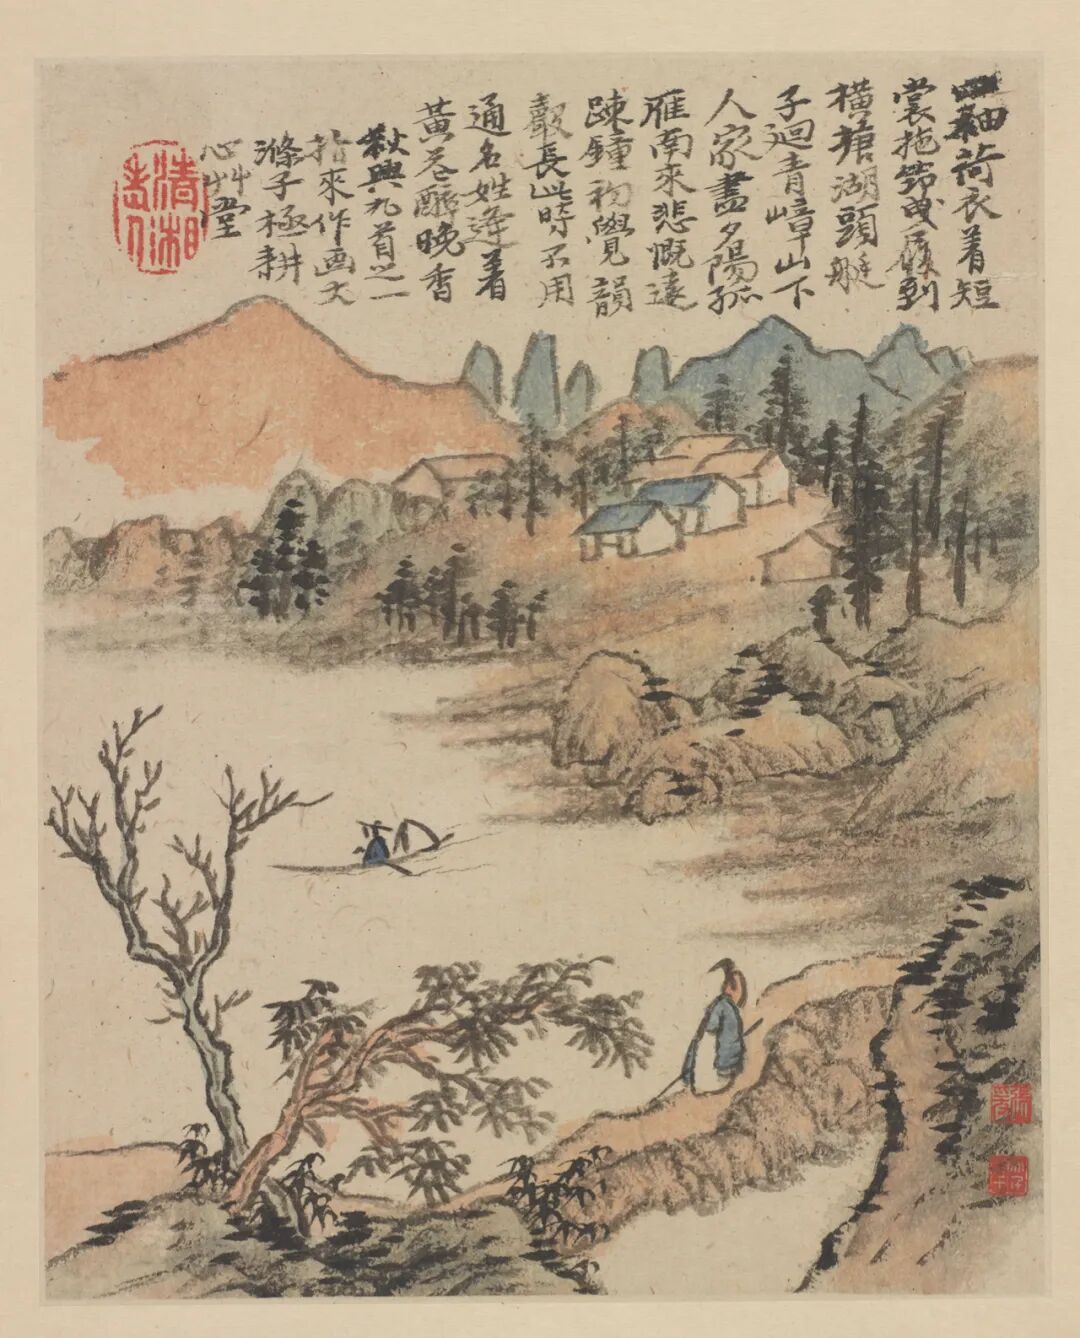 袖荷衣着短
裳拖筇曳履到
橫塘湖頭艇
子迴青嶂山下
人家盡夕陽孤
雁南來悲慨遠
踈鐘初覺韻
嚴長此時不用
通名姓逢着
黃花醉晚香
秋興九首之一
拈來作画大
滌子極耕
心艸堂
清湘
老人